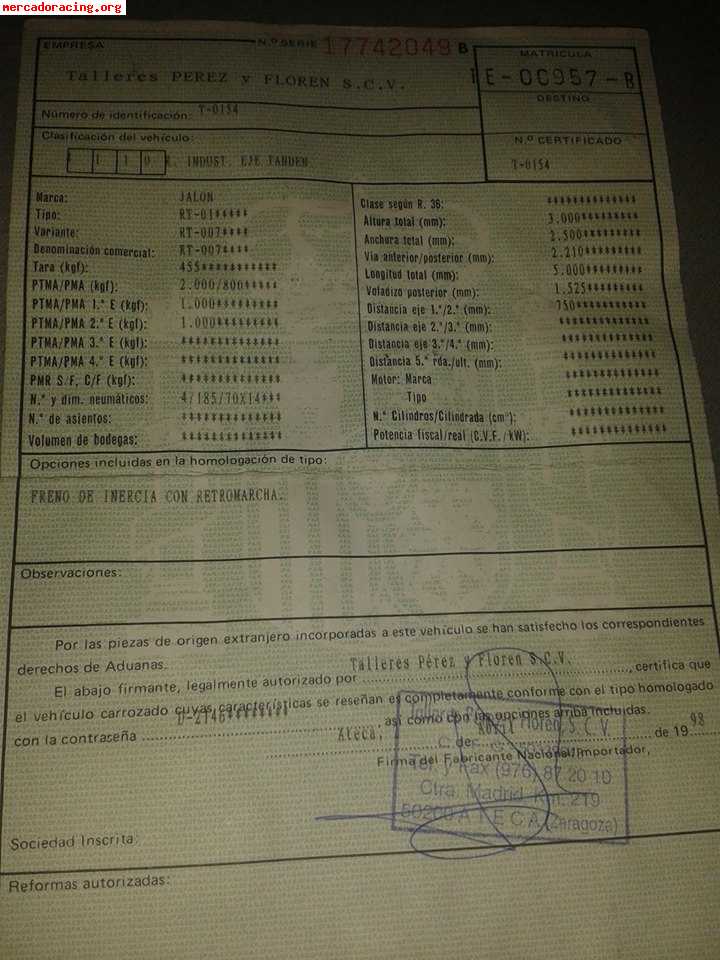 mercadoracing.org
EMPRESA
N.º SERIE 17742049 B
MATRICULA
Talleres PEREZ y FLOREN S.C.V.
E-00957-B
DESTINO
Número de identificación: T-0154
Clasificación del vehículo:
N.º CERTIFICADO
1 1 0 R. INDUST. EJE TANDEM
T-0154
Marca: JALON
Tipo: RT-01*****
Variante: RT-007****
Denominación comercial: RT-007****
Tara (kgf): 455***********
PTMA/PMA (kgf): 2.000/800*****
PTMA/PMA 1.ª E (kgf): 1.000*********
PTMA/PMA 2.ª E (kgf): 1.000*********
PTMA/PMA 3.ª E (kgf): **************
PTMA/PMA 4.ª E (kgf): **************
PMR S/F, C/F (kgf): **************
N.º y dim. neumáticos: 4/185/70X14***
N.º de asientos: **************
Volumen de bodegas: **************
Clase según R. 36: **************
Altura total (mm): 3.000*********
Anchura total (mm): 2.500*********
Via anterior/posterior (mm): 2.210*********
Longitud total (mm): 5.000*********
Voladizo posterior (mm): 1.525*********
Distancia eje 1.º/2.º (mm): 750***********
Distancia eje 2.º/3.º (mm): **************
Distancia eje 3.º/4.º (mm): **************
Distancia 5.ª rda./ult. (mm): **************
Motor: Marca **************
Tipo **************
N.º Cilindros/Cilindrada (cm³): **************
Potencia fiscal/real (C.V.F./kW): **************
Opciones incluidas en la homologación de tipo:
FRENO DE INERCIA CON RETROMARCHA.
Observaciones:
Por las piezas de origen extranjero incorporadas a este vehículo se han satisfecho los correspondientes
derechos de Aduanas.
El abajo firmante, legalmente autorizado por Talleres Pérez y Floren S.C.V., certifica que
el vehículo carrozado cuyas características se reseñan es completamente conforme con el tipo homologado
con la contraseña D-2146********, así como con las opciones arriba incluidas.
Ateca, de Abril de 19 98
Firma del Fabricante Nacional/Importador,
Floren, S.C.V.
Tel. y Fax (976) 87 20 10
Ctra. Madrid, Km. 219
50200 ATECA (Zaragoza)
Sociedad Inscrita:
Reformas autorizadas: